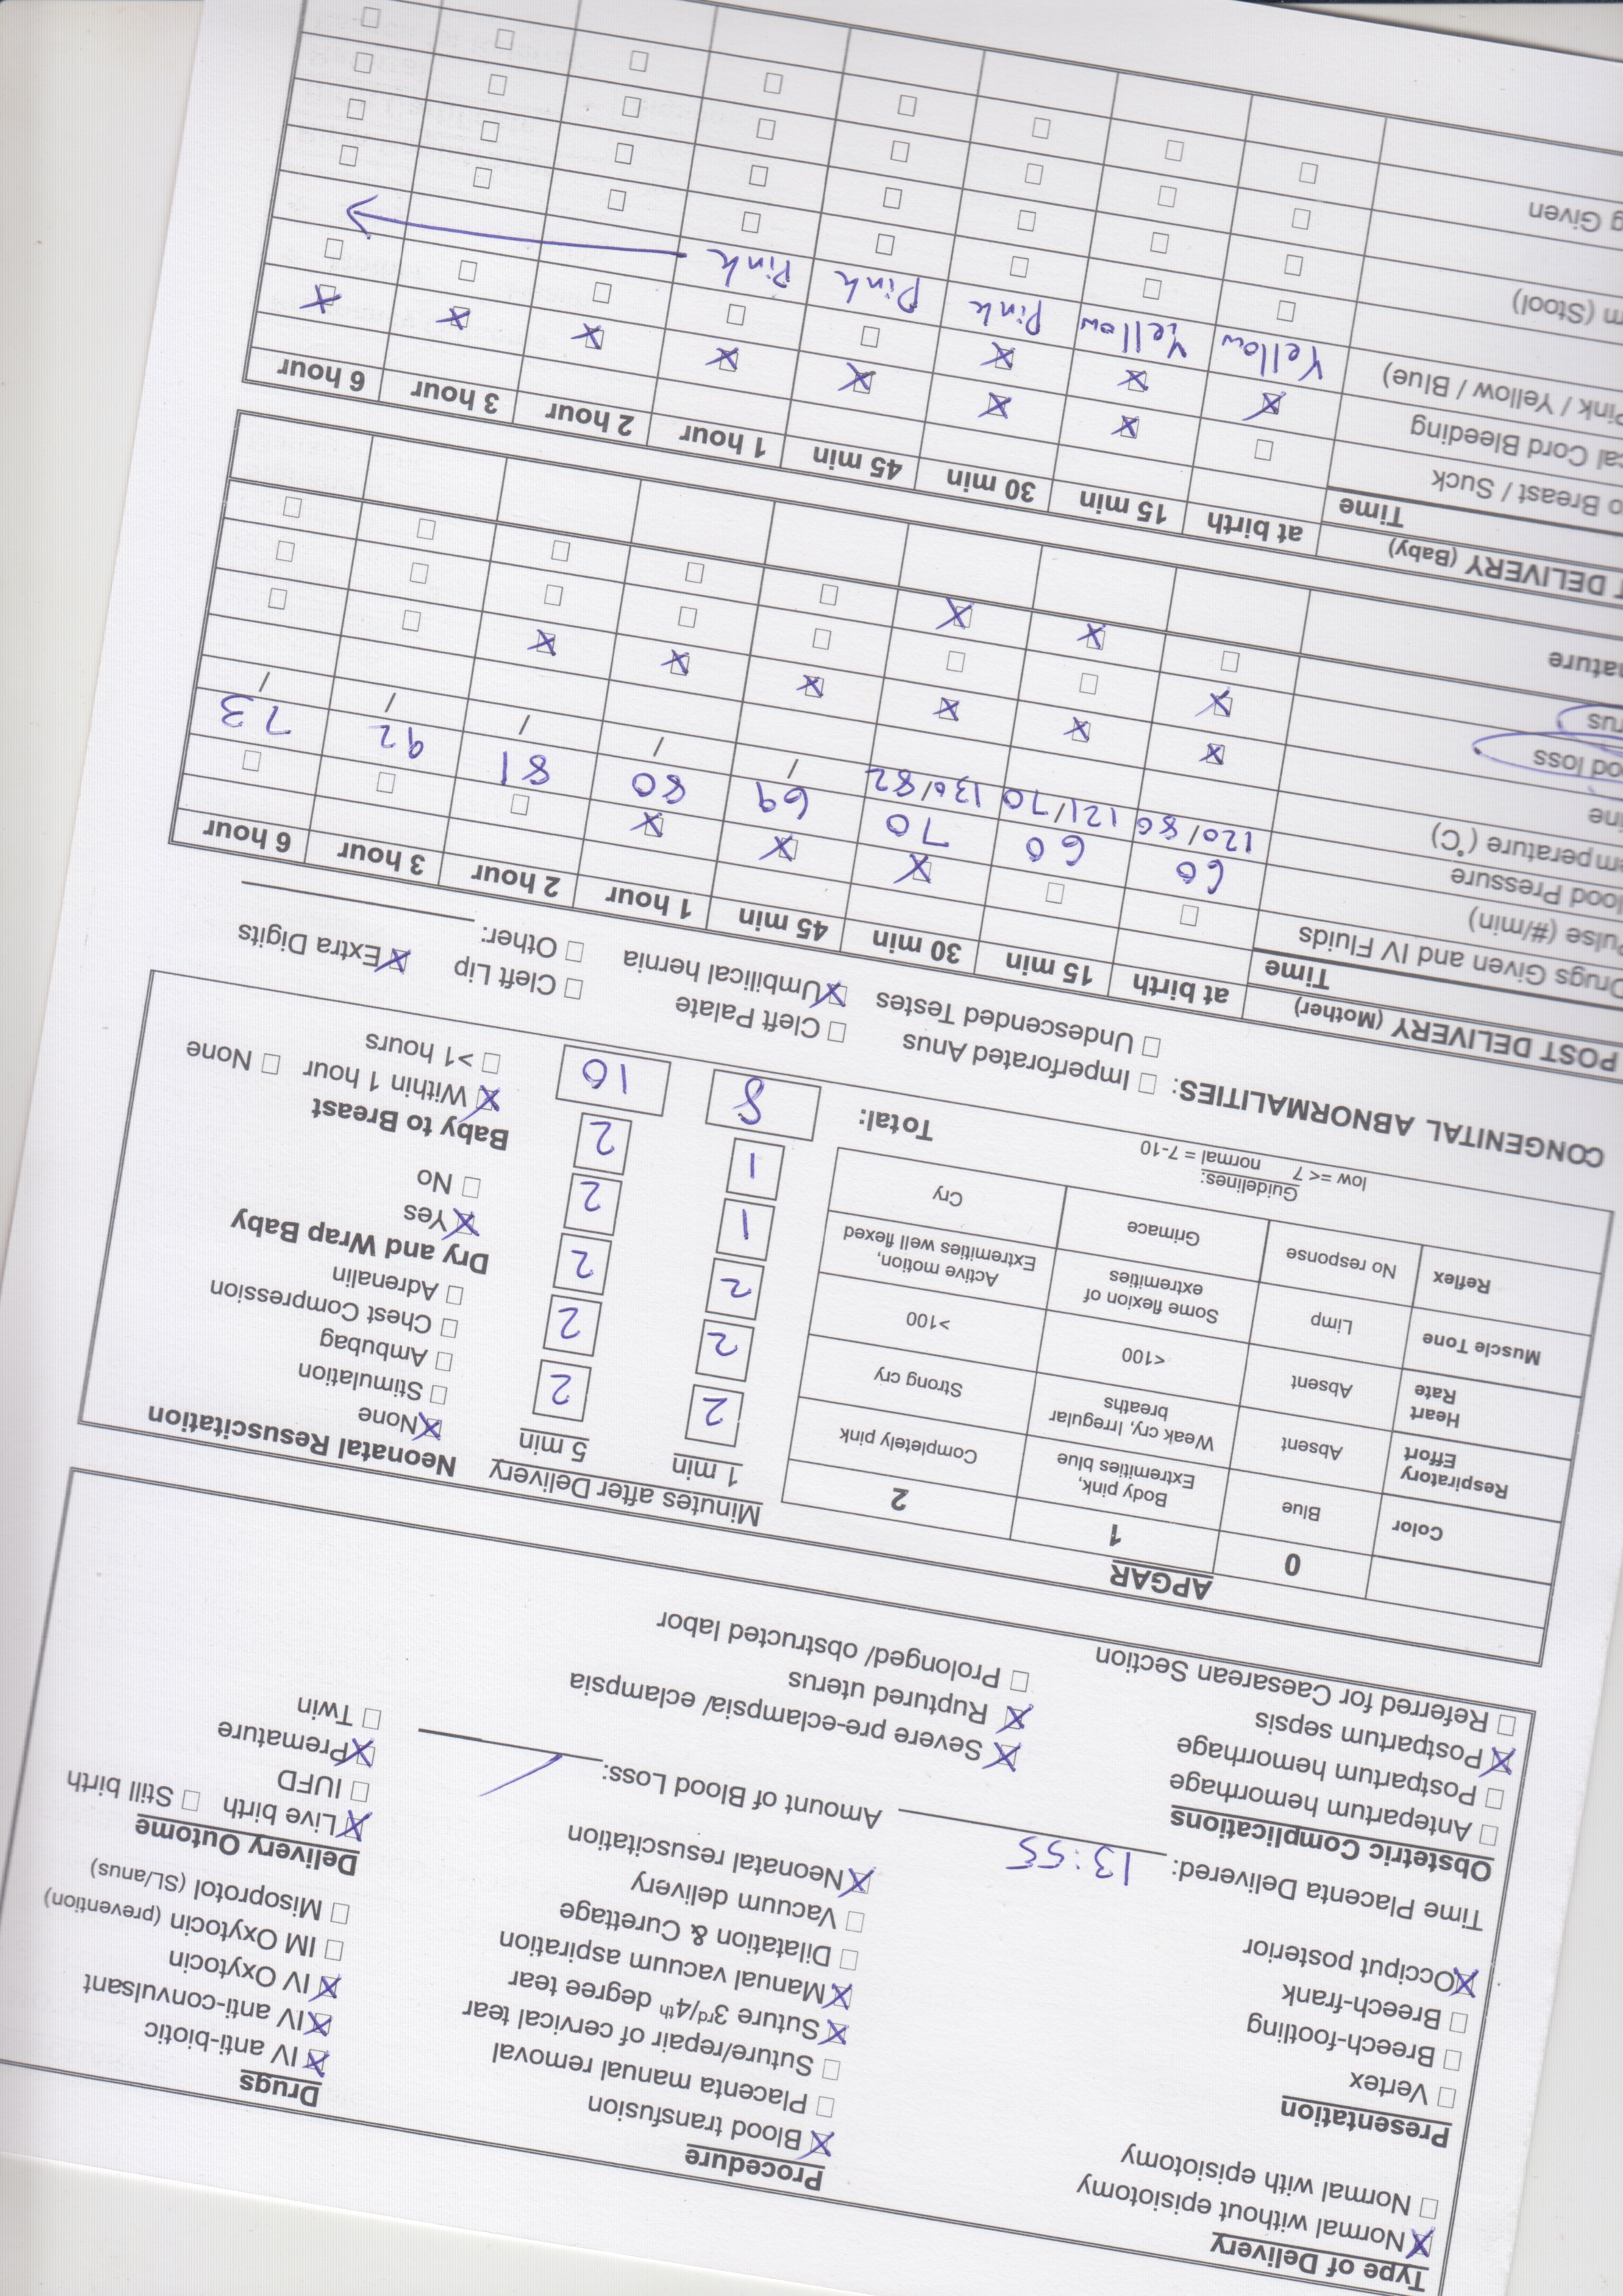 Type of Delivery
☒ Normal without episiotomy
☐ Normal with episiotomy
Presentation
☐ Vertex
☐ Breech-footling
☐ Breech-frank
☒ Occiput posterior
Procedure
☒ Blood transfusion
☐ Placenta manual removal
☐ Suture/repair of cervical tear
☒ Suture 3rd/4th degree tear
☒ Manual vacuum aspiration
☐ Dilatation & Curettage
☐ Vacuum delivery
☒ Neonatal resuscitation
Drugs
☒ IV anti-biotic
☒ IV anti-convulsant
☒ IV Oxytocin
☐ IM Oxytocin (prevention)
☐ Misoprotol (SL/anus)
Time Placenta Delivered: 13:55 Amount of Blood Loss: /
Obstetric Complications
☐ Antepartum hemorrhage
☐ Postpartum hemorrhage
☒ Postpartum sepsis
☐ Referred for Caesarean Section
☒ Severe pre-eclampsia/ eclampsia
☒ Ruptured uterus
☐ Prolonged/ obstructed labor
Delivery Outome
☒ Live birth ☐ Still birth
☐ IUFD
☒ Premature
☐ Twin
APGAR
0 1 2
Color Blue Body pink, Extremities blue Completely pink
Respiratory Effort Absent Weak cry, Irregular breaths Strong cry
Heart Rate Absent <100 >100
Muscle Tone Limp Some flexion of extremities Active motion, Extremities well flexed
Reflex No response Grimace Cry
Guidelines:
low =< 7 normal = 7-10
Minutes after Delivery
1 min 5 min
2 2
2 2
2 2
1 2
1 2
Total: 8 10
Neonatal Resuscitation
☒ None
☐ Stimulation
☐ Ambubag
☐ Chest Compression
☐ Adrenalin
Dry and Wrap Baby
☒ Yes
☐ No
Baby to Breast
☒ Within 1 hour ☐ None
☐ >1 hours
CONGENITAL ABNORMALITIES: ☐ Imperforated Anus ☐ Cleft Palate ☐ Cleft Lip ☒ Extra Digits
☐ Undescended Testes ☒ Umbilical hernia ☐ Other:
POST DELIVERY (Mother)
Time at birth 15 min 30 min 45 min 1 hour 2 hour 3 hour 6 hour
Drugs Given and IV Fluids ☐ ☐ ☒ ☒ ☒ ☐ ☐ ☐
Pulse (#/min) 60 60 70 69 80 81 92 73
lood Pressure 120/80 121/70 130/82 / / / / /
emperature (°C)
ine ☒ ☒ ☒ ☒ ☒ ☒ ☐ ☐
od loss ☒ ☐ ☐ ☐ ☐ ☐ ☐ ☐
rus ☐ ☒ ☒ ☐ ☐ ☐ ☐ ☐
nature
T DELIVERY (Baby)
Time at birth 15 min 30 min 45 min 1 hour 2 hour 3 hour 6 hour
o Breast / Suck ☐ ☒ ☒ ☒ ☒ ☒ ☒ ☒
cal Cord Bleeding ☒ ☒ ☒ ☐ ☐ ☐ ☐ ☐
Pink / Yellow / Blue) Yellow Yellow Pink Pink Pink →
☐ ☐ ☐ ☐ ☐ ☐ ☐ ☐
m (Stool) ☐ ☐ ☐ ☐ ☐ ☐ ☐ ☐
☐ ☐ ☐ ☐ ☐ ☐ ☐ ☐
g Given ☐ ☐ ☐ ☐ ☐ ☐ ☐ ☐